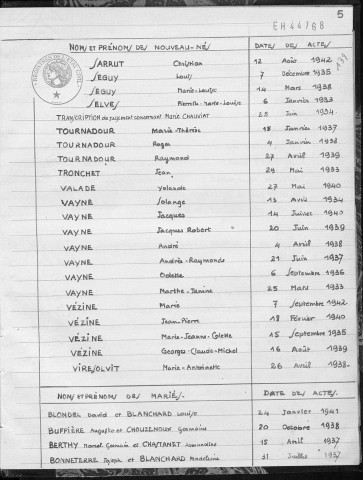 5
EH44768
NOM ET PRÉNOM DE NOUVEAU-NÉ DATE DES ACTES
SARRUT Christian 12 Août 1942
SEGUY Louis 7 Décembre 1935
SEGUY Marie-Louise 14 Mars 1938
SELVES Pierrette-Marie-Louise 6 Janvier 1933
TRANSCRIPTION de jugement concernant Marie CHAUVIAT 25 Juin 1934
TOURNADOUR Marie-Thérèse 18 Janvier 1937
TOURNADOUR Roger 4 Janvier 1938
TOURNADOUR Raymond 27 Avril 1939
TRONCHET Jean 29 Mai 1933
VALADE Yolande 27 Mai 1940
VAYNE Solange 13 Avril 1934
VAYNE Jacques 14 Juillet 1940
VAYNE Jacques Robert 20 Juin 1939
VAYNE André 4 Avril 1938
VAYNE Andrée-Raymonde 21 Juin 1937
VAYNE Odette 6 Septembre 1936
VAYNE Marthe-Janine 25 Mars 1933
VÉZINE Marie 7 Septembre 1942
VÉZINE Jean-Pierre 18 Février 1940
VÉZINE Marie-Jeanne-Colette 15 Septembre 1935
VÉZINE Georges-Claude-Michel 16 Août 1939
VIRESOLVIT Marie-Antoinette 26 Avril 1938
NOM ET PRÉNOM DE MARIÉS. DATE DES ACTES.
BLONDEL David et BLANCHARD Louise 24 Janvier 1941
BUFFIÈRE Auguste et CHOUZENOUX Germaine 20 Octobre 1938
BERTHY Marcel Germain et CHASTANET 15 Avril 1937
BONNETERRE Joseph et BLANCHARD Madeleine 31 Juillet 1937